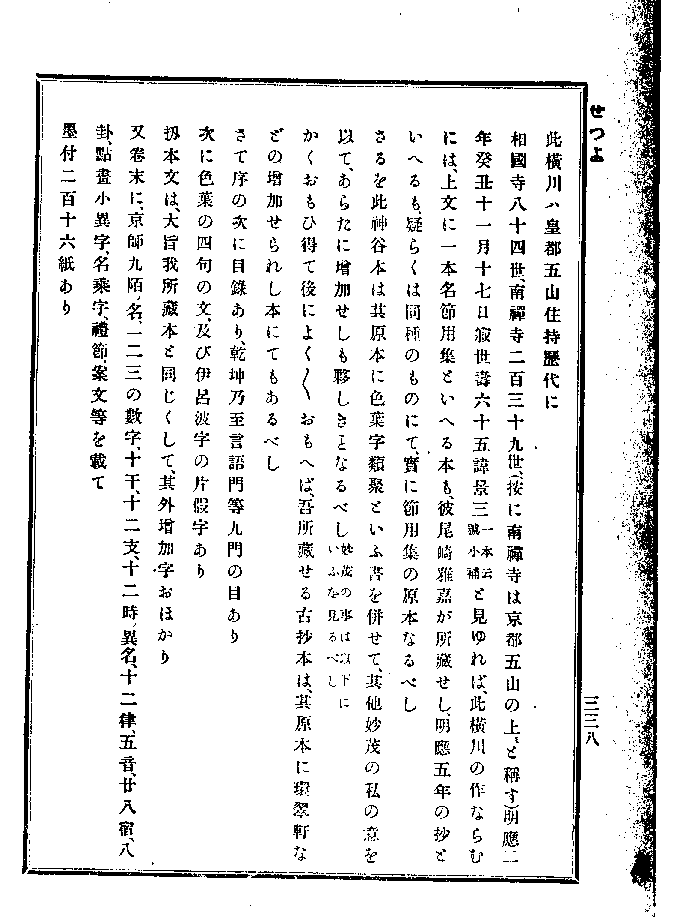 せつよ
此橫川ハ皇都五山住持歷代に
相國寺八十四世、南禪寺二百三十九世、按に南禪寺は京都五山の上、と稱す)明應二
年癸丑十一月十七日寂世壽六十五諱景三一本云號小補と見ゆれば、此橫川の作ならむ
には、上文に一本名節用集といへる本も、彼尾崎雅嘉が所藏せし、明應五年の抄と
いへるも疑らくは同種のものにて、實に節用集の原本なるべし
さるを此神谷本は其原本に色葉字類聚といふ書を併せて、其他妙茂の私の意を
以て、あらたに增加せしも夥しきとなるべし妙茂の事は以下にいふを見るべし
かくおもひ得て後によく〱おもへば、吾所藏せる古抄本は、其原本に環翠軒な
どの增加せられし本にてもあるべし
さて序の次に目錄あり、乾坤乃至言語門等九門の目あり
次に色葉の四句の文、及び伊呂波字の片假字あり
扨本文は、大旨我所藏本と同じくして、其外增加字おほかり
又卷末に、京師九陌ノ名、一二三の數字、十干、十二支、十二時ノ異名、十二律、五音、廿八宿、八
卦、點畫小異字、名乘字、禮節、案文等を載て
墨付二百十六紙あり
三三八